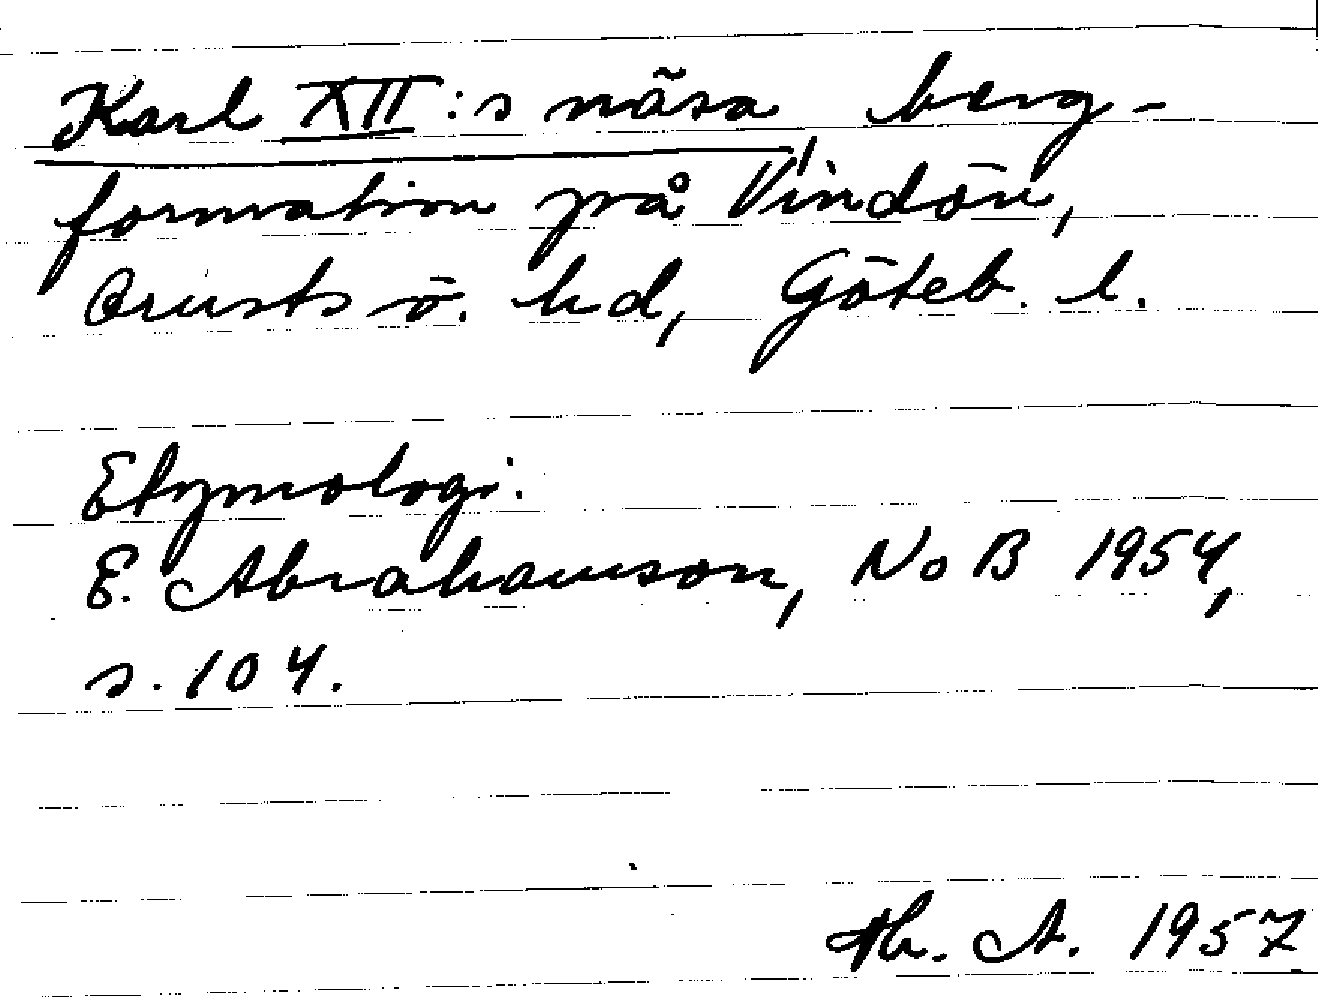 Karl XII:s näsa, berg-
formation på Vindön,
Orusts ö. hd, Göteb. l.
Etymologi:
E. Abrahamson, NoB 1954,
s. 104.
Th. A. 1957